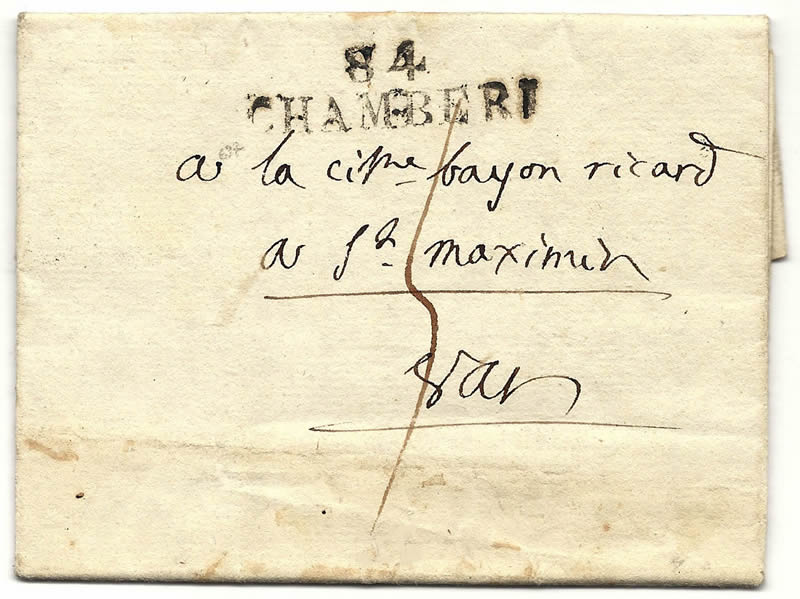 84
CHAMBERI
a la cit.ne bayon ricard
a St. maximin
Var